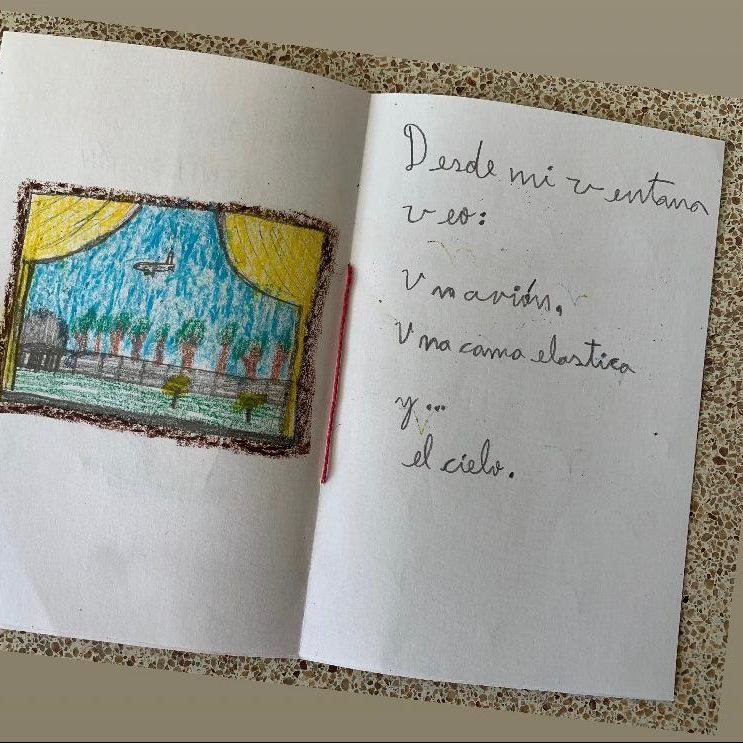 Desde mi ventana
veo:
Un avión,
Una cama elastica
y...
el cielo.